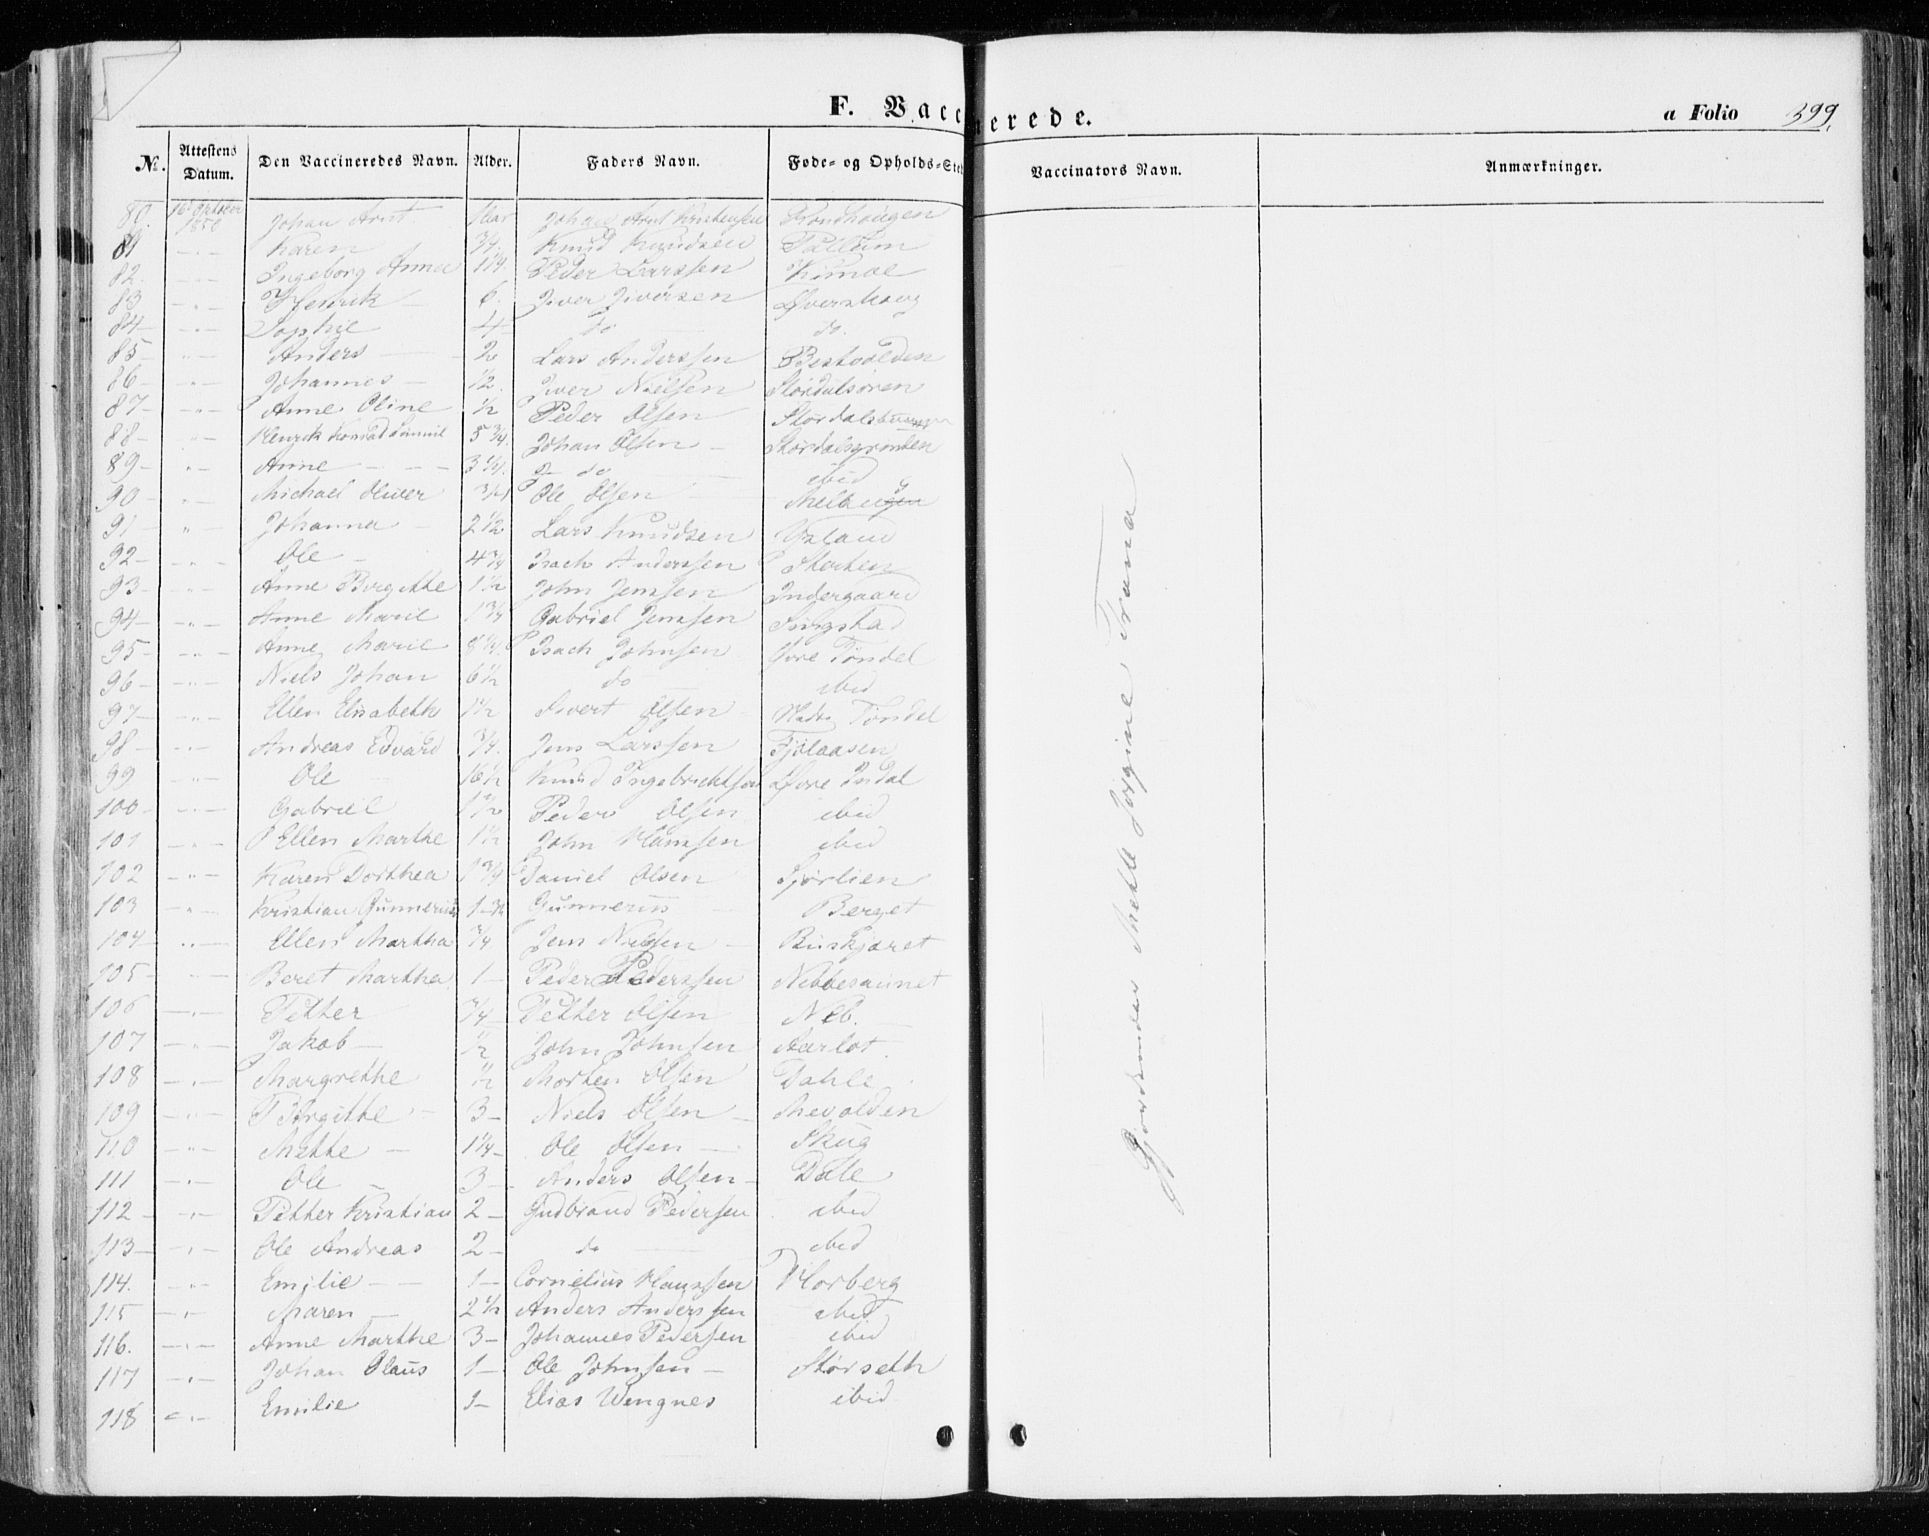 F. Vaccinerede. a Folio 399.
No. Attestens Datum. Den Vaccineredes Navn. Alder. Faders Navn. Føde- og Opholds-Sted Vaccinators Navn. Anmærkninger.
80. 16de Oktober 1850 Johan Arnt Johan Arnt Kristensen
81 -"- Karen 3/4. Knud Knudsen
82. -"- Ingeborg Anna 1 1/4. Peder Larssen
83 -"- Henrik - 6. Iver Iversen
84- -"- Sophie 4 do do.
85- -"- Anders 2 Lars Anderssen
86- -"- Johannes - 1/2. Iver Nielsen Stördalsören
87- -"- Anne Oline 1/2 Peder Olsen
88- -"- Henrik Konrad 5 3/4. Johan Olsen -
89- -"- Anne - - - 3 1/4. do ibid
90- -"- Michael Oliver 3/4 Ole Olsen
91- -"- Johanna - 2 1/2 Lars Knudsen
92- -"- Ole - 4 3/4 Isach Anderssen Storten
93- -"- Anne Birgitte 1 1/2 John Jenssen Indergaard
94- -"- Anne Marie 1 3/4 Gabriel Jenssen
95- -"- Anne Marie 8 1/4. Isach Johnsen Øvre Töndel
96- -"- Niels Johan 6 1/2 do ibid
97- -"- Ellen Elisabeth 1 1/2 Sivert Olsen Töndel
98- -"- Andreas Edvard 3/4. Jens Larssen Fjölaasen
99 -"- Ole 16 1/2 Knud Ingebrichtsen Øvre Indal
100- -"- Gabriel 1 1/2 Peder Olsen ibid
101 -"- Ellen Marthe 1 1/2 John Hanssen ibid
102 -"- Karen Dorthea 1 3/4 Daniel Olsen
103 -"- Kristian Gunnerius 1-3/4 Gunnerius Berget
104- -"- Ellen Martha 3/4 Jens Nielsen - Buskjæret
105- -"- Beret Martha 1- Peder Pederssen
106 -"- Petter 3/4 Petter Olsen
107 -"- Jakob - 1/2 John Johnsen
108 -"- Margrethe 1/2 Morten Olsen Dahle
109 -"- Birgitte 3- Niels Olsen - Mevolden
110 -"- Mette - 1 1/4- Ole Olsen -
111 -"- Ole - 3- Anders Olsen- Dale
112- -"- Petter Kristian 2- Gudbrand Pedersen ibid
113- -"- Ole Andreas 2- do ibid
114. -"- Emilie - - 1- Cornelius Hanssen Horberg
115 -"- Maren - 2 1/2 Anders Anderssen ibid
116. -"- Anne Marthe 3- Johannes Pedersen ibid
117 -"- Johan Olaus 1- Ole Johnsen - Störseth
118 -"- Emilie 1- Elias Wengnes ibid
Gjordemoder Mette Jörgine Trana